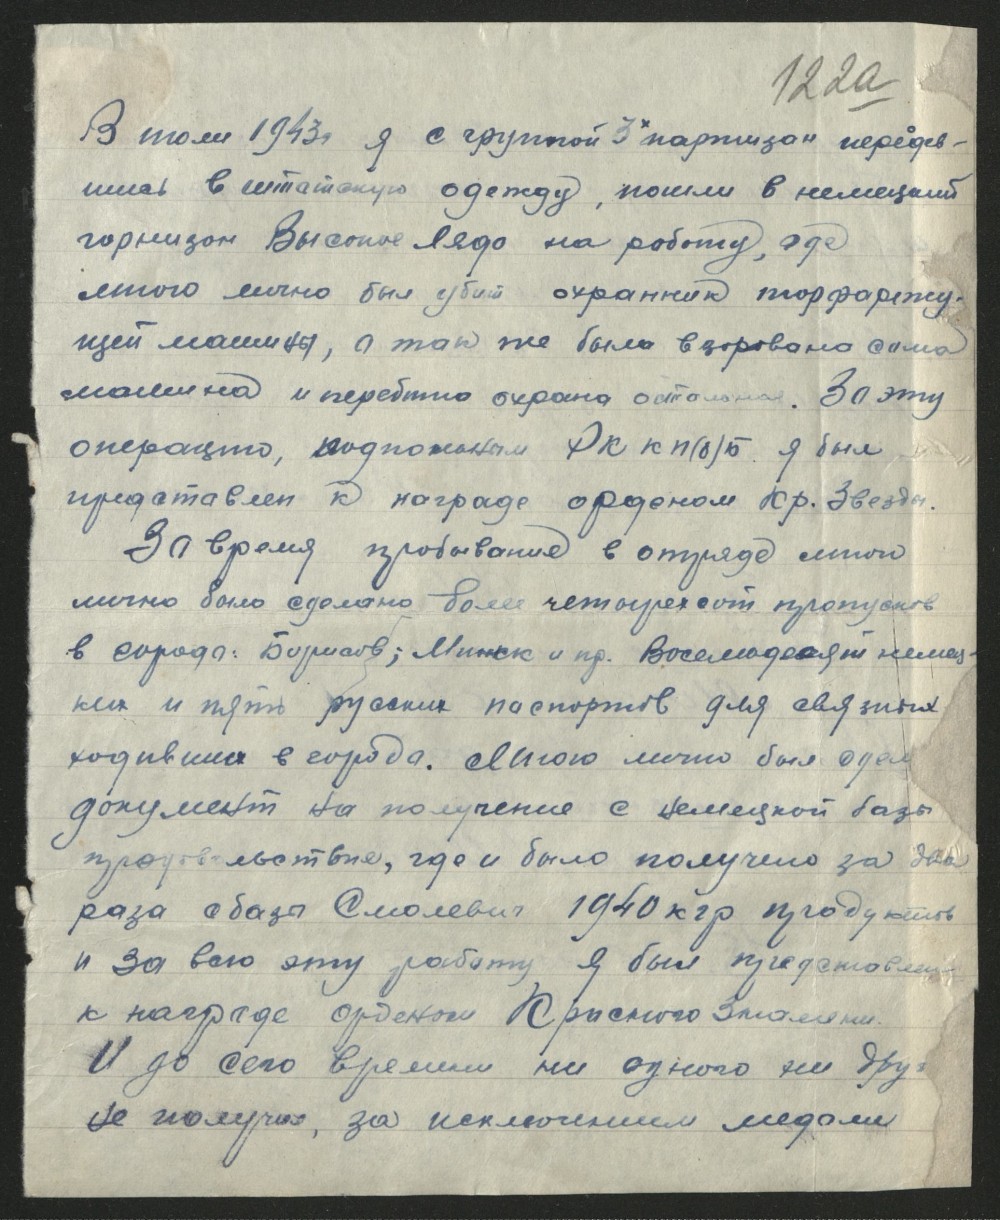 122а
В июли 1943г я с группой 3х партизан передев-
шись в штатскую одежду, пошли в немецкий
горнизон Высокое Лядо на роботу, где
мною лично был убит охранник торфарежу-
щей машины, а так же была взорвана сама
машина и перебита охрана остальная. За эту
операцию, подпольным РК КП(б)Б я был
представлен к награде орденом Кр. Звезды.
За время пробывание в отряде мною
лично было сделано более четырехсот пропусков
в города: Борисов; Минск и пр. Восемьдесят немец-
ких и пять русских паспортов для связных
ходивших в города. Мною лично был сдел
документ на получение с немецкой базы
продовольствие, где и было получено за два
раза с базы Смолевич 1940 кгр продуктов
и за всю эту работу я был представлен
к награде орденом Красного Знамени.
И до сего времени ни одного ни друг
не получил, за исключением медали